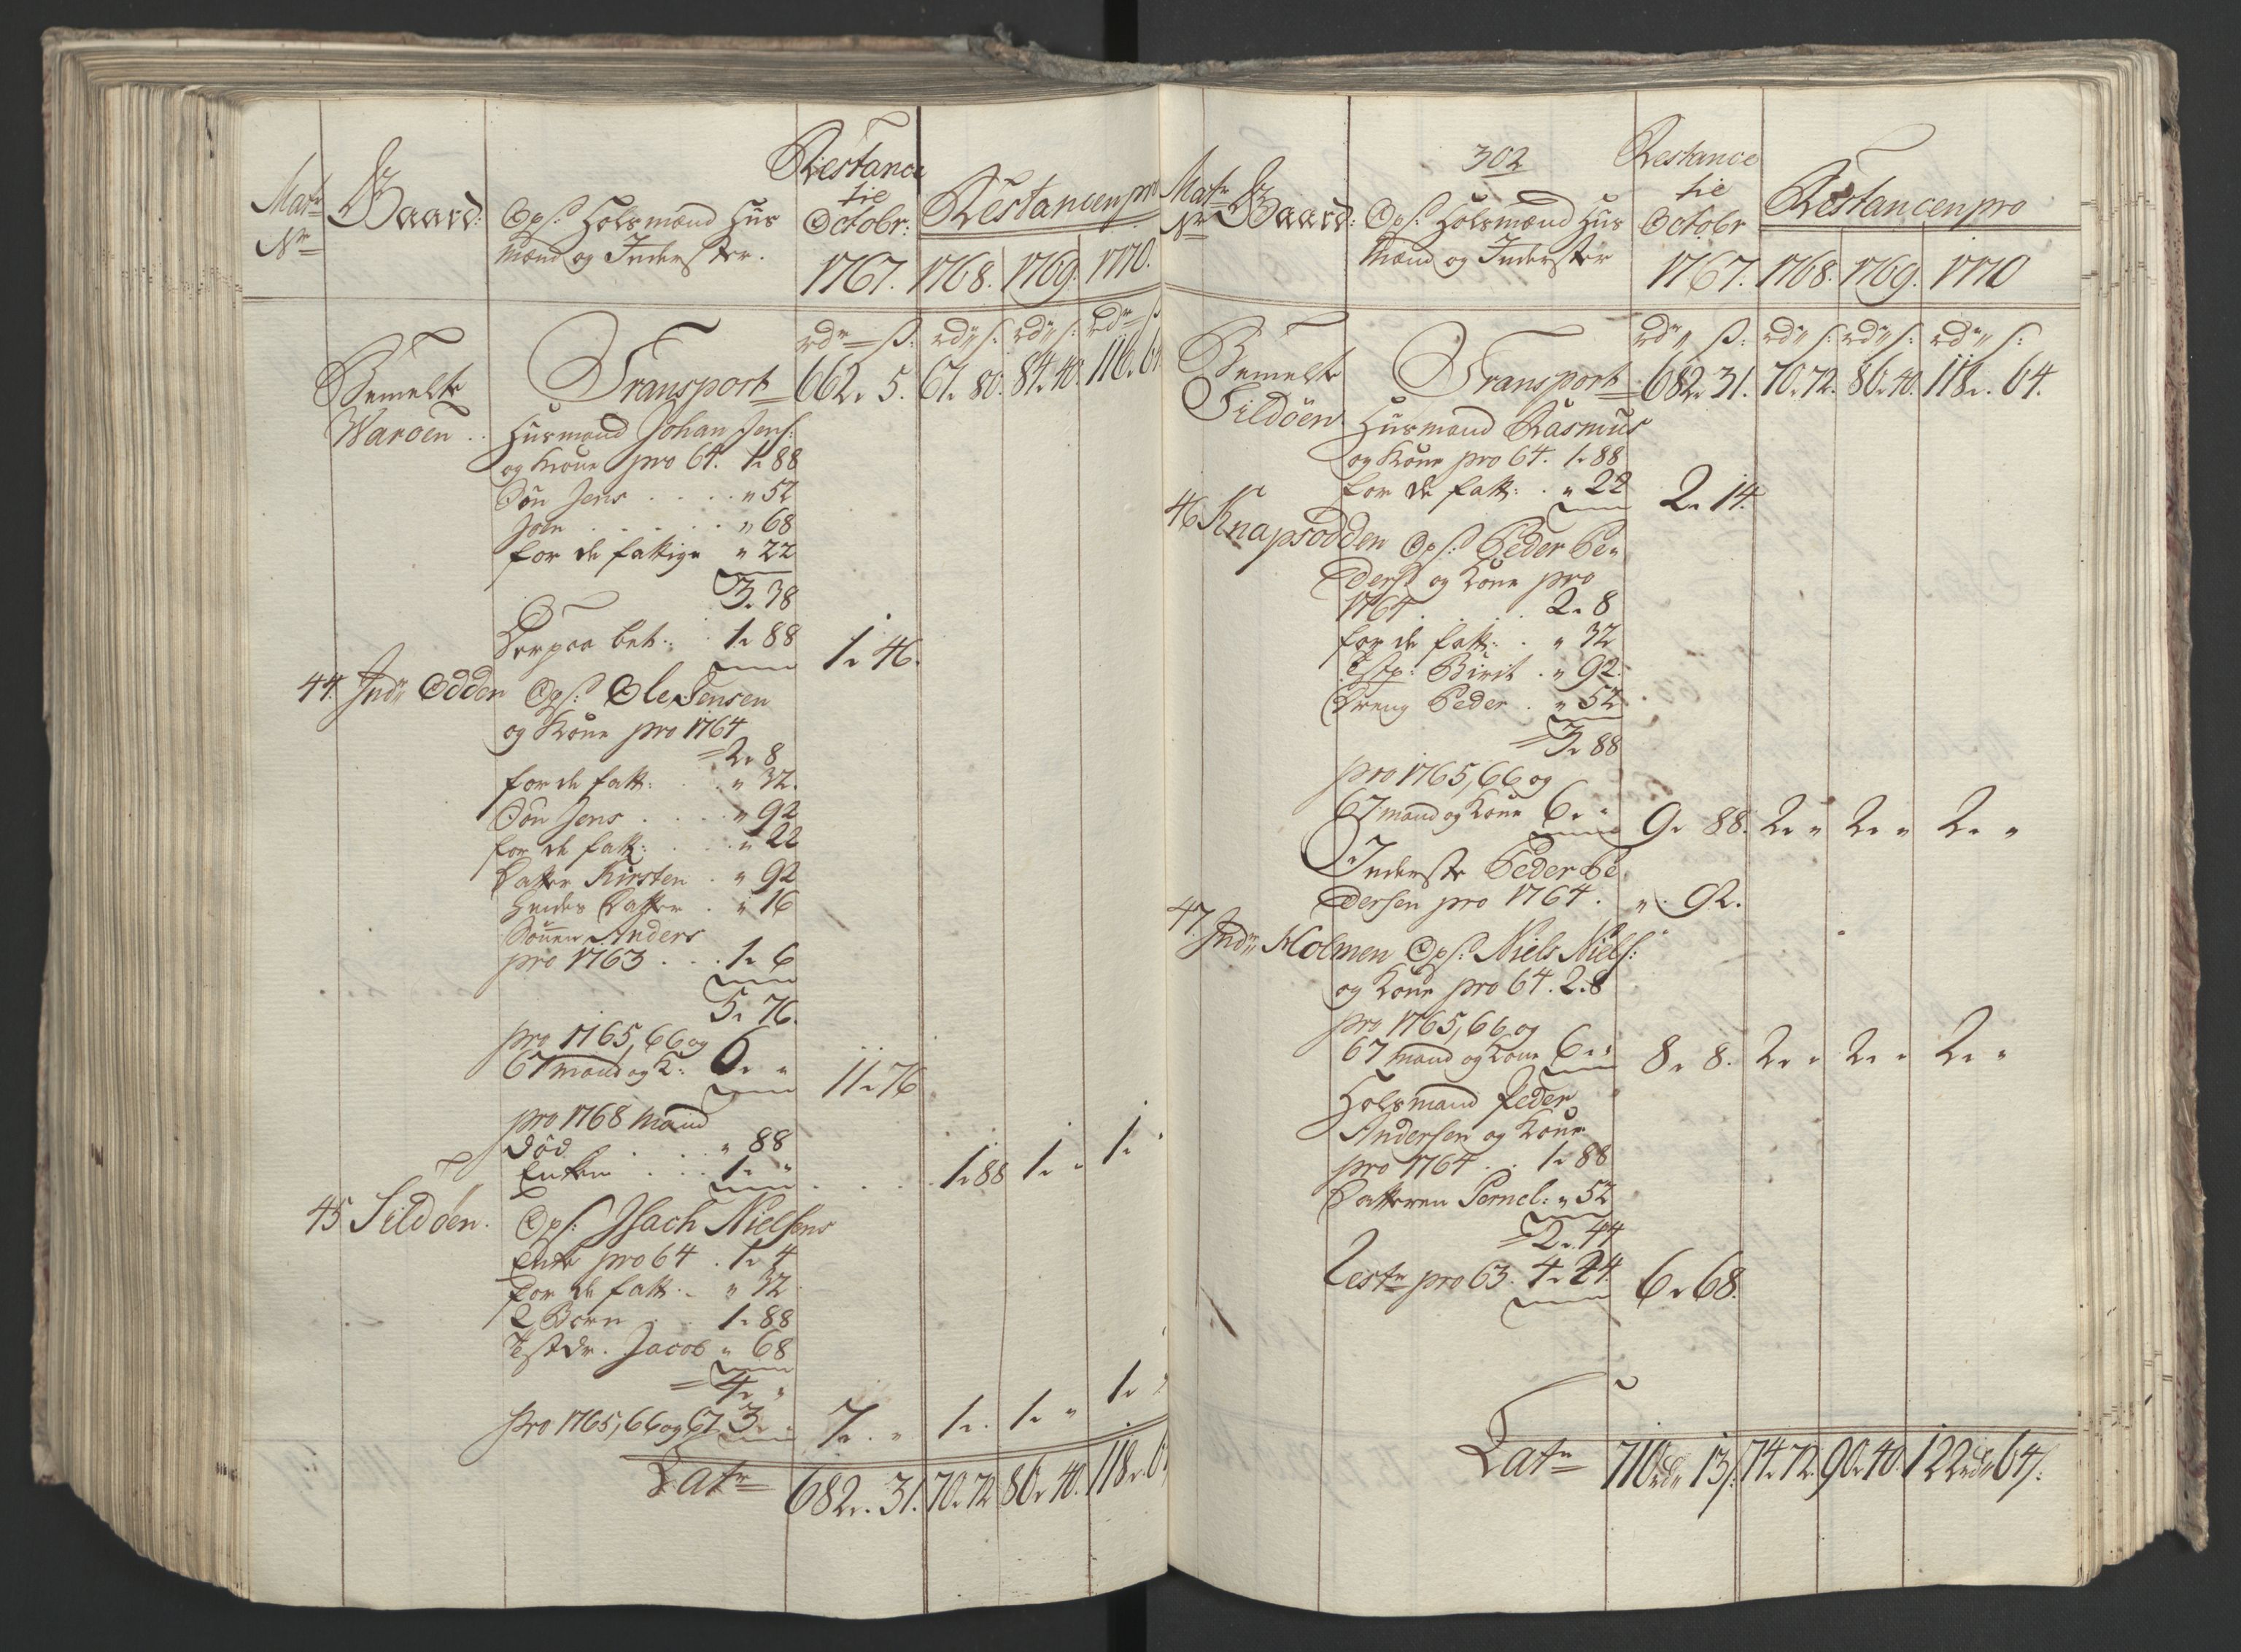 Matr Gaard: Ops: Holsmænd Huus Restance til Restancen pro
Nr mænd og Inderster. Octobr:
1767. 1768. 1769. 1770.
rdr ß: rdr ß: rdr ß: rdr ß
Bemelte Transport 662„ 5. 67„ 80. 84„ 40. 116„ 6
Waröen Husmand Johan Jens:
og Kone pro 64. 1„ 88
Søn Jens . . . . „ 52
Joen . . . . . „ 68
for de fattige „ 22
3„ 38
Derpaa bet: . 1„ 88 1„ 46.
44. Indr Odden Ops: Ole Jensen
og Kone pro 1764
2„ 8
for de fatt: . . „ 32.
Søn Jens . . . . „ 92
for de fatt: . . . „ 22
Datter Kirsten . „ 92
hendes Datter . „ 16
Sønnen Anders
pro 1763 . . . 1„ 6
5„ 76.
pro 1765, 66 og
67 mand og K: 6„ „ 11„ 76
pro 1768 mand
død . . . „ 88
Enken . . . 1„ „ . . . 1„ 88 1„ „ 1„
45 Sildöen. Ops: Isach Nielsens
Enke pro 64 . 1„ 4
for de fatt: „ 32
2 Børn . . 1„ 88
Tstdr. Jacob „ 68
4„ „
pro 1765, 66 og 67 3„ . 7„ „ 1„ . 1„ „ 1„
Latr 682„ 31. 70„ 72 86„ 40. 118„ 6
302
Matr Gaard: Ops: Holsmænd Huus Restance til Restancen pro
Nr mænd og Inderster Octobr
1767. 1768. 1769. 1770
rdr„ ß: rdr„ ß: rdr„ ß: rdr„ ß:
Bemelte Transport 682„ 31. 70„ 72. 86„ 40. 118„ 64.
Sildöen Husmand Rasmus
og Kone pro 64. 1„ 88
for de fatt: . „ 22 2„ 14.
46 Knapsodden Ops: Peder Pe„
ders: og Kone pro
1764 . . . . 2„ 8
for de fatt: . „ 32
Tstp: Birit . „ 92.
Dreng Peder . „ 52
3„ 88
pro 1765, 66 og
67 mand og Kone 6„ „ 9„ 88. 2„ „ 2„ „ 2„ „
Inderste Peder Pe„
dersen pro 1764. „ 92.
47. Indr Holmen Ops: Niels Niels:
og Kone pro 64. 2„ 8
pro 1765, 66 og
67 mand og Kone 6„ „ 8„ 8. 2„ „ 2„ „ 2„ „
Holsmand Peder
Andersen og Kone
pro 1764 . . 1„ 88
Datteren Pernel: „ 52
2„ 44
Restr pro 63. 4„ 24 6„ 68.
Latr 710 rdr„ 13ß. 74„ 72. 90„ 40. 122 rdr„ 64ß: